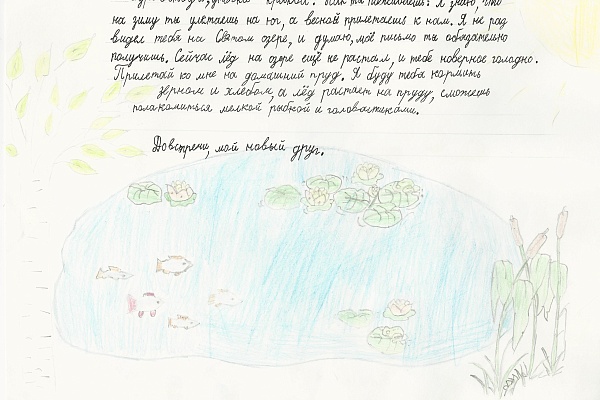 на зиму ты улетаешь на юг, а весной прилетаешь к нам. Я не раз
видел тебя на Святом озере, и думаю, моё письмо ты обязательно
получишь. Сейчас лёд на озере ещё не растал, и тебе наверное голодно.
Прилетай ко мне на домашний пруд. Я буду тебя кормить
зерном и хлебом, а лёд растает на пруду, сможешь
полакомиться мелкой рыбкой и головастиками.
До встречи, мой новый друг.